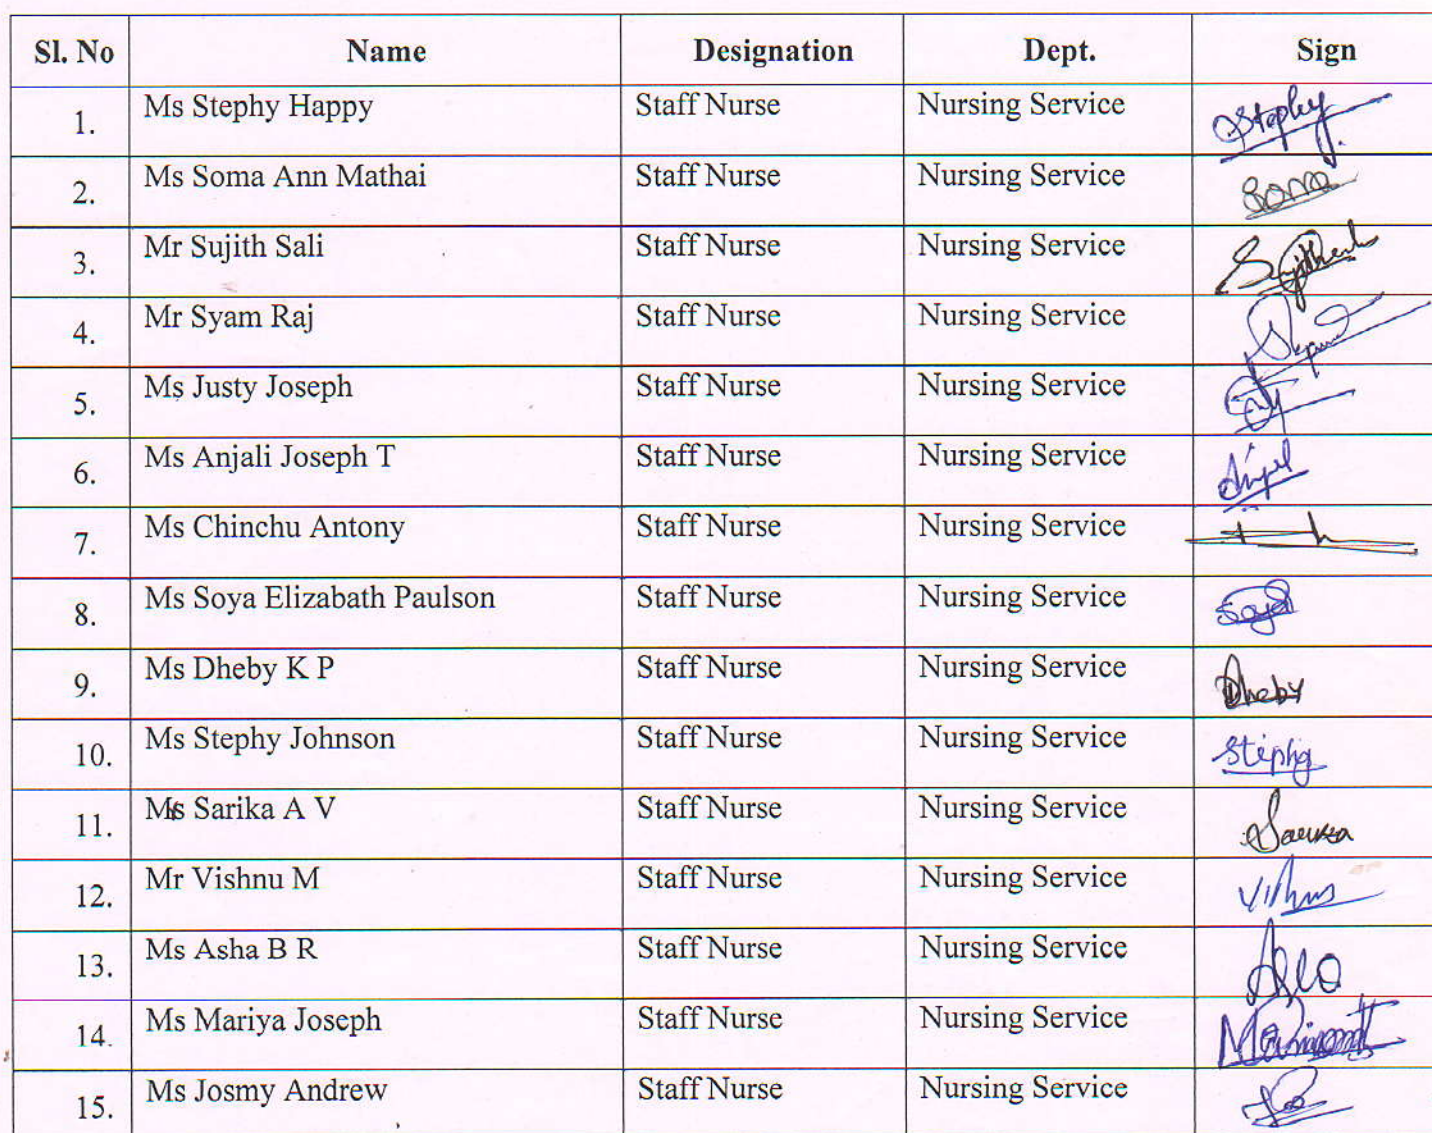 Sl. No Name Designation Dept. Sign
1. Ms Stephy Happy Staff Nurse Nursing Service Stephy
2. Ms Soma Ann Mathai Staff Nurse Nursing Service Soma
3. Mr Sujith Sali Staff Nurse Nursing Service
4. Mr Syam Raj Staff Nurse Nursing Service
5. Ms Justy Joseph Staff Nurse Nursing Service
6. Ms Anjali Joseph T Staff Nurse Nursing Service
7. Ms Chinchu Antony Staff Nurse Nursing Service
8. Ms Soya Elizabath Paulson Staff Nurse Nursing Service Soya
9. Ms Dheby K P Staff Nurse Nursing Service Dheby
10. Ms Stephy Johnson Staff Nurse Nursing Service Stephy
11. Ms Sarika A V Staff Nurse Nursing Service
12. Mr Vishnu M Staff Nurse Nursing Service
13. Ms Asha B R Staff Nurse Nursing Service
14. Ms Mariya Joseph Staff Nurse Nursing Service
15. Ms Josmy Andrew Staff Nurse Nursing Service